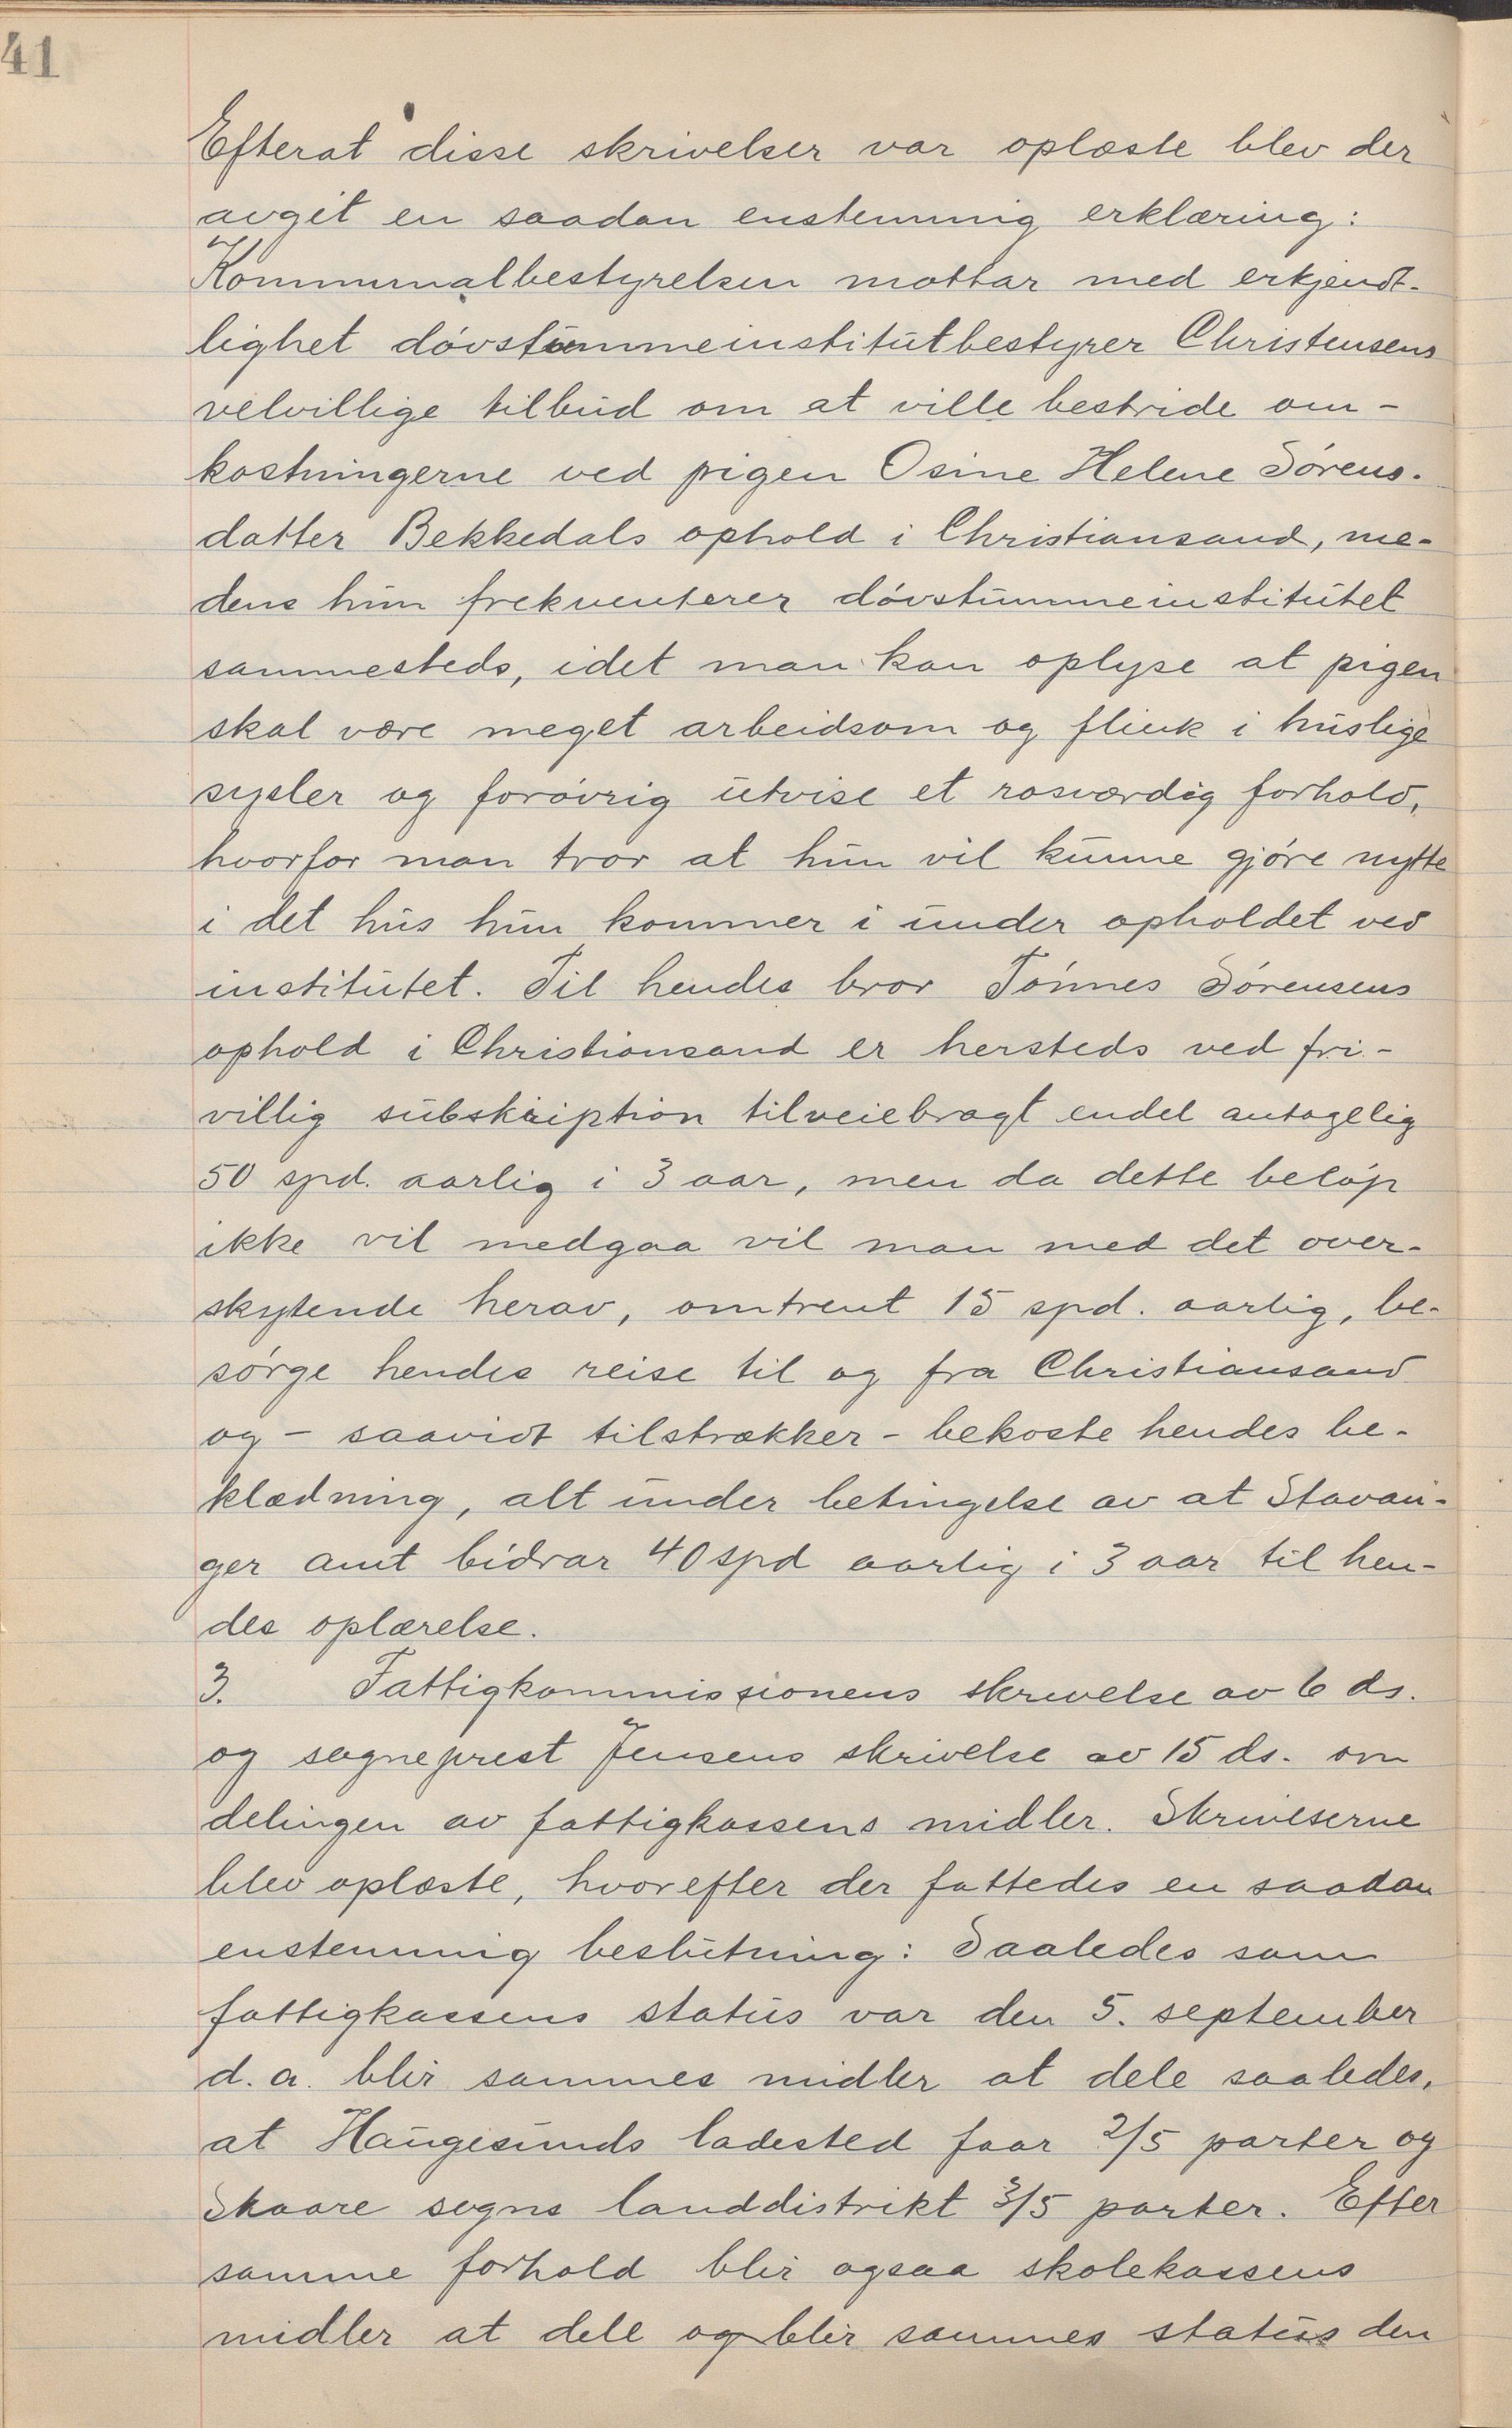 41
Efterat disse skrivelser var oplæste blev der
avgit en saadan enstemmig erklæring:
Kommunalbestyrelsen mottar med erkjendt-
lighet døvstummeinstitutbestyrer Christensens
velvillige tilbud om at ville bestride om-
kostningerne ved pigen Osine Helene Sørens-
datter Bekkedals ophold i Christiansand, me-
dens hun frekventerer døvstummeinstitutet
sammesteds, idet man kan oplyse at pigen
skal være meget arbeidsom og flink i huslige
sysler og forøvrig utvise et rosværdig forhold,
hvorfor man tror at hun vil kunne gjøre nytte
i det hus hun kommer i under opholdet ved
institutet. Til hendes bror Tønnes Sørensens
ophold i Christiansand er hersteds ved fri-
villig subskription tilveiebragt endel antagelig
50 spd. aarlig i 3 aar, men da dette beløp
ikke vil medgaa vil man med det over-
skytende herav, omtrent 15 spd. aarlig, be-
sørge hendes reise til og fra Christiansand
og - saavidt tilstrækker - bekoste hendes be-
klædning, alt under betingelse av at Stavan-
ger amt bidrar 40 spd aarlig i 3 aar til hen-
des oplærelse.
3. Fattigkommissionens skrivelse av 6 ds.
og sogneprest Jensens skrivelse av 15 ds. om
delingen av fattigkassens midler. Skrivelserne
blev oplæste, hvorefter der fattedes en saadan
enstemmig beslutning: Saaledes som
fattigkassens status var den 5. september
d. a. blir sammes midler at dele saaledes,
at Haugesunds ladested faar 2/5 parter og
Skaare sogns landdistrikt 3/5 parter. Efter
samme forhold blir ogsaa skolekassens
midler at dele og blir sammes status den